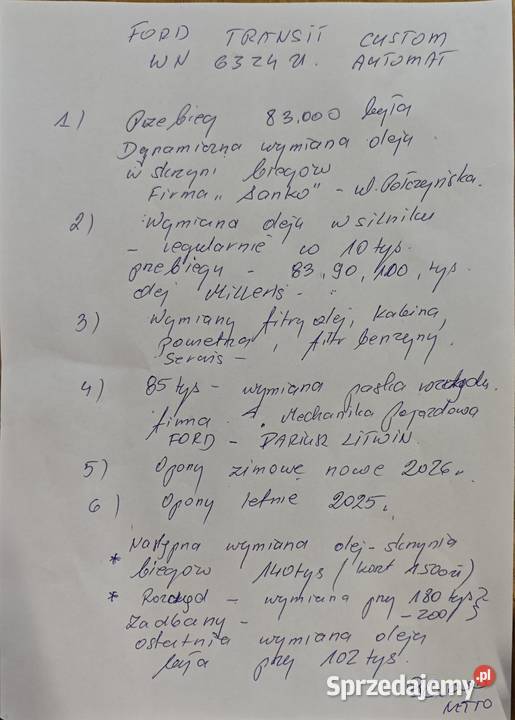 FORD TRANSIT CUSTOM
WN 6324U. AUTOMAT
1) Przebieg 83.000 była
Dynamiczna wymiana oleju
w skrzyni biegów
Firma „Sanko" - ul. Połczyńska.
2) Wymiana oleju w silniku
- regularnie co 10 tys.
przebiegu - 83, 90, 100, tys.
olej Millers - "
3) Wymiany filtry olej, kabina,
powietrza, filtr benzyny.
Serwis -
4) 85 tys - wymiana paska rozrządu.
firma Mechanika Pojazdowa
FORD - DARIUSZ LITWIN.
5) Opony zimowe nowe 2026r
6) Opony letnie 2025r
Następna wymiana olej-skrzynia
* biegów 140 tys (koszt 1500zł)
* Rozrząd - wymiana przy 180 tys
Zadbany - - 200
ostatnia wymiana oleju
była przy 102 tys.
NETTO
Sprzedajemy.pl